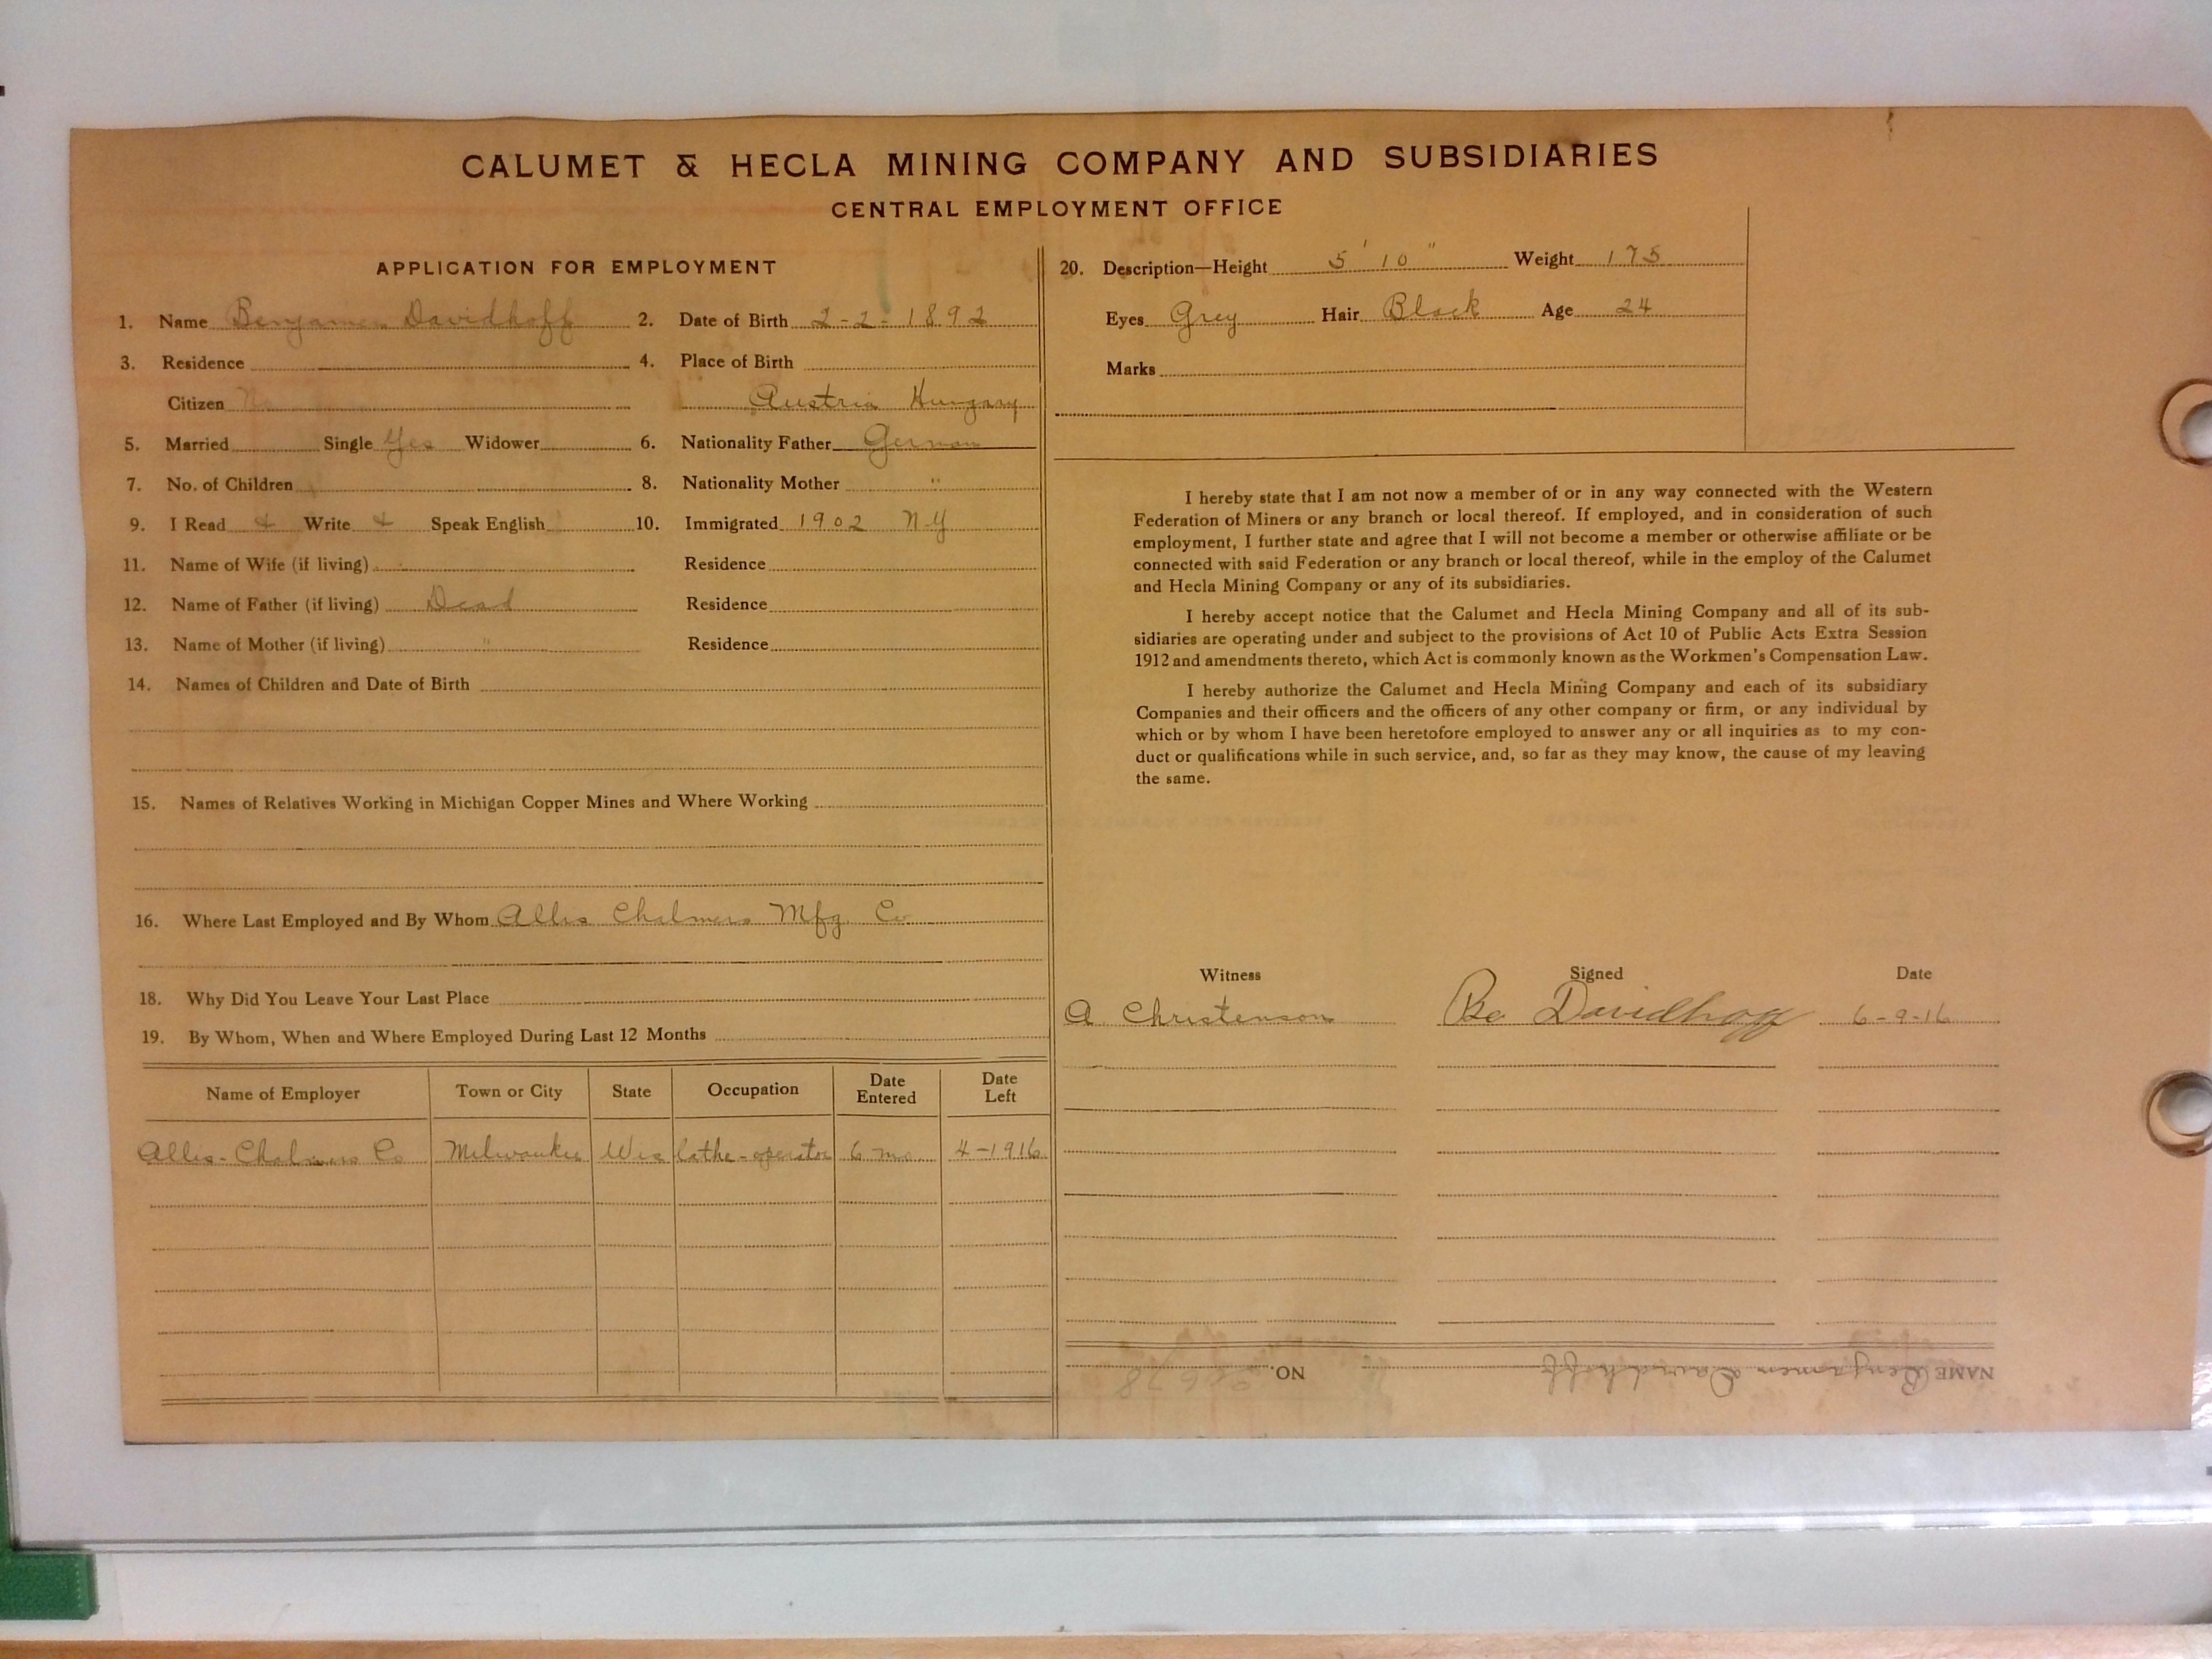 CALUMET & HECLA MINING COMPANY AND SUBSIDIARIES
CENTRAL EMPLOYMENT OFFICE
APPLICATION FOR EMPLOYMENT
1. Name Benjamen Davidhoff 2. Date of Birth 2-2-1892
3. Residence 4. Place of Birth
Citizen No Austria Hungary
5. Married Single Yes Widower 6. Nationality Father German
7. No. of Children 8. Nationality Mother "
9. I Read & Write & Speak English 10. Immigrated 1902 N-Y
11. Name of Wife (if living) Residence
12. Name of Father (if living) Dead Residence
13. Name of Mother (if living) " Residence
14. Names of Children and Date of Birth
15. Names of Relatives Working in Michigan Copper Mines and Where Working
16. Where Last Employed and By Whom Allis Chalmers Mfg. Co
18. Why Did You Leave Your Last Place
19. By Whom, When and Where Employed During Last 12 Months
Name of Employer Town or City State Occupation Date Entered Date Left
Allis-Chalmers Co Milwaukee Wis lathe-operator 6 mo 4-1916
20. Description—Height 5' 10" Weight 175
Eyes Grey Hair Black Age 24
Marks
I hereby state that I am not now a member of or in any way connected with the Western
Federation of Miners or any branch or local thereof. If employed, and in consideration of such
employment, I further state and agree that I will not become a member or otherwise affiliate or be
connected with said Federation or any branch or local thereof, while in the employ of the Calumet
and Hecla Mining Company or any of its subsidiaries.
I hereby accept notice that the Calumet and Hecla Mining Company and all of its sub-
sidiaries are operating under and subject to the provisions of Act 10 of Public Acts Extra Session
1912 and amendments thereto, which Act is commonly known as the Workmen's Compensation Law.
I hereby authorize the Calumet and Hecla Mining Company and each of its subsidiary
Companies and their officers and the officers of any other company or firm, or any individual by
which or by whom I have been heretofore employed to answer any or all inquiries as to my con-
duct or qualifications while in such service, and, so far as they may know, the cause of my leaving
the same.
Witness Signed Date
A Christenson Davidhoff 6-9-16
NAME Benjamen Davidhoff NO.